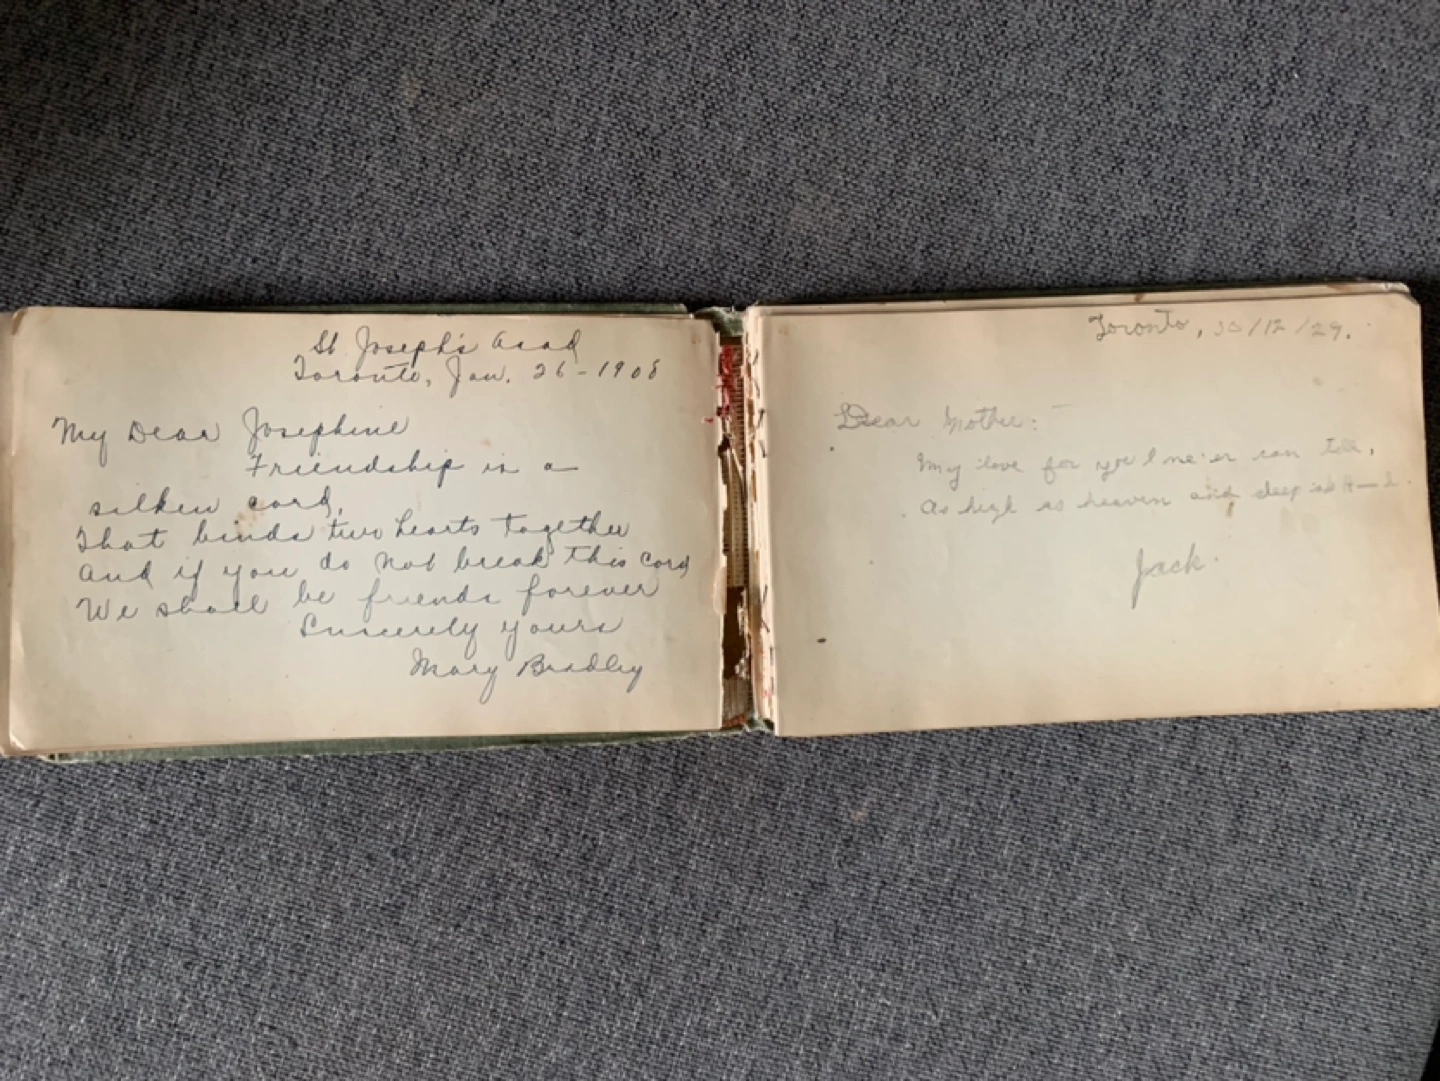 St Joseph's Acad
Toronto, Jan. 26-1908
My Dear Josephine
Friendship is a
silken cord,
That binds two hearts together
And if you do not break this cord
We shall be friends forever
Sincerely yours
Mary Bradley
Toronto, 30/12/29.
Dear Mother:-
My love for you I ne'er can tell,
As high as heaven and deep as H--l.
Jack.